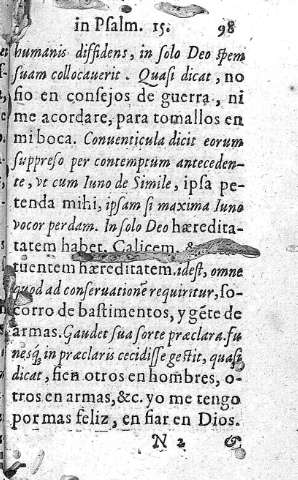 in Psalm. 15. 98
humanis diffidens, in solo Deo spem
suam collocauerit. Quasi dicat, no
fio en consejos de guerra, ni
me acordare, para tomallos en
mi boca. Conuenticula dicit eorum
suppreso per contemptum anteceden-
te, vt cum Iuno de Simile, ipsa pe-
tenda mihi, ipsam si maxima Iuno
vocor perdam. In solo Deo hæredita-
tatem habet. Calicem, &
tuentem hæreditatem. idest, omne
quod ad conseruationē requiritur, so-
corro de bastimentos, y gēte de
armas. Gaudet sua sorte præclara. fu
nesq; in præclaris cecidisse gestit, quasi
dicat, fien otros en hombres, o-
tros en armas, &c. yo me tengo
por mas feliz, en fiar en Dios.
N 2 &